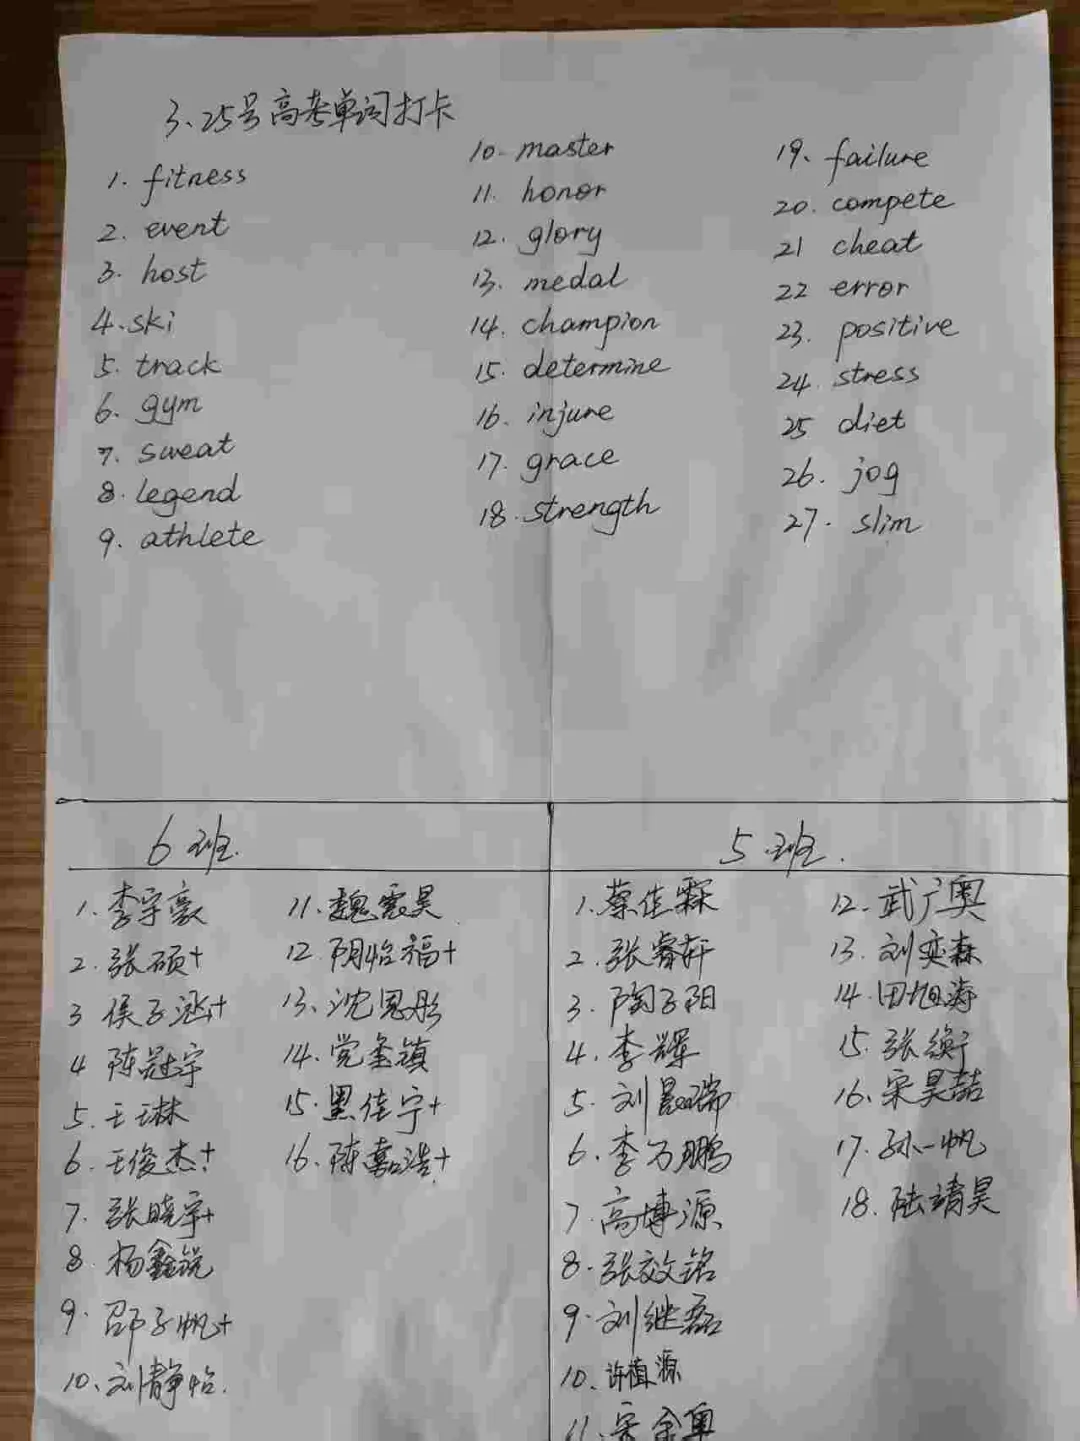 3.25号高考单词打卡
1. fitness
2. event
3. host
4. ski
5. track
6. gym
7. sweat
8. legend
9. athlete
10. master
11. honor
12. glory
13. medal
14. champion
15. determine
16. injure
17. grace
18. strength
19. failure
20. compete
21 cheat
22 error
23. positive
24. stress
25 diet
26. jog
27. slim
6班.
1. 李宇豪
2. 张硕+
3 侯子涵+
4 陈冠宇
5. 王琳
6. 王俊杰+
7. 张晓宇+
8 杨鑫锐
9. 邵子帆+
10. 刘静怡.
11. 魏震昊
12 阴怡福+
13. 沈思彤
14. 党金镇
15. 黑佳宁+
16. 陈嘉浩+
5班.
1. 蔡佳霖
2. 张睿轩
3. 陶子阳
4. 李辉
5. 刘晨瑞
6. 李万鹏
7 高博源
8. 张效铭
9. 刘继磊
10. 许植源
11.
12. 武广奥
13. 刘奕森
14 田旭涛
15. 张衡
16. 宋昊喆
17. 孙一帆
18. 陆靖昊